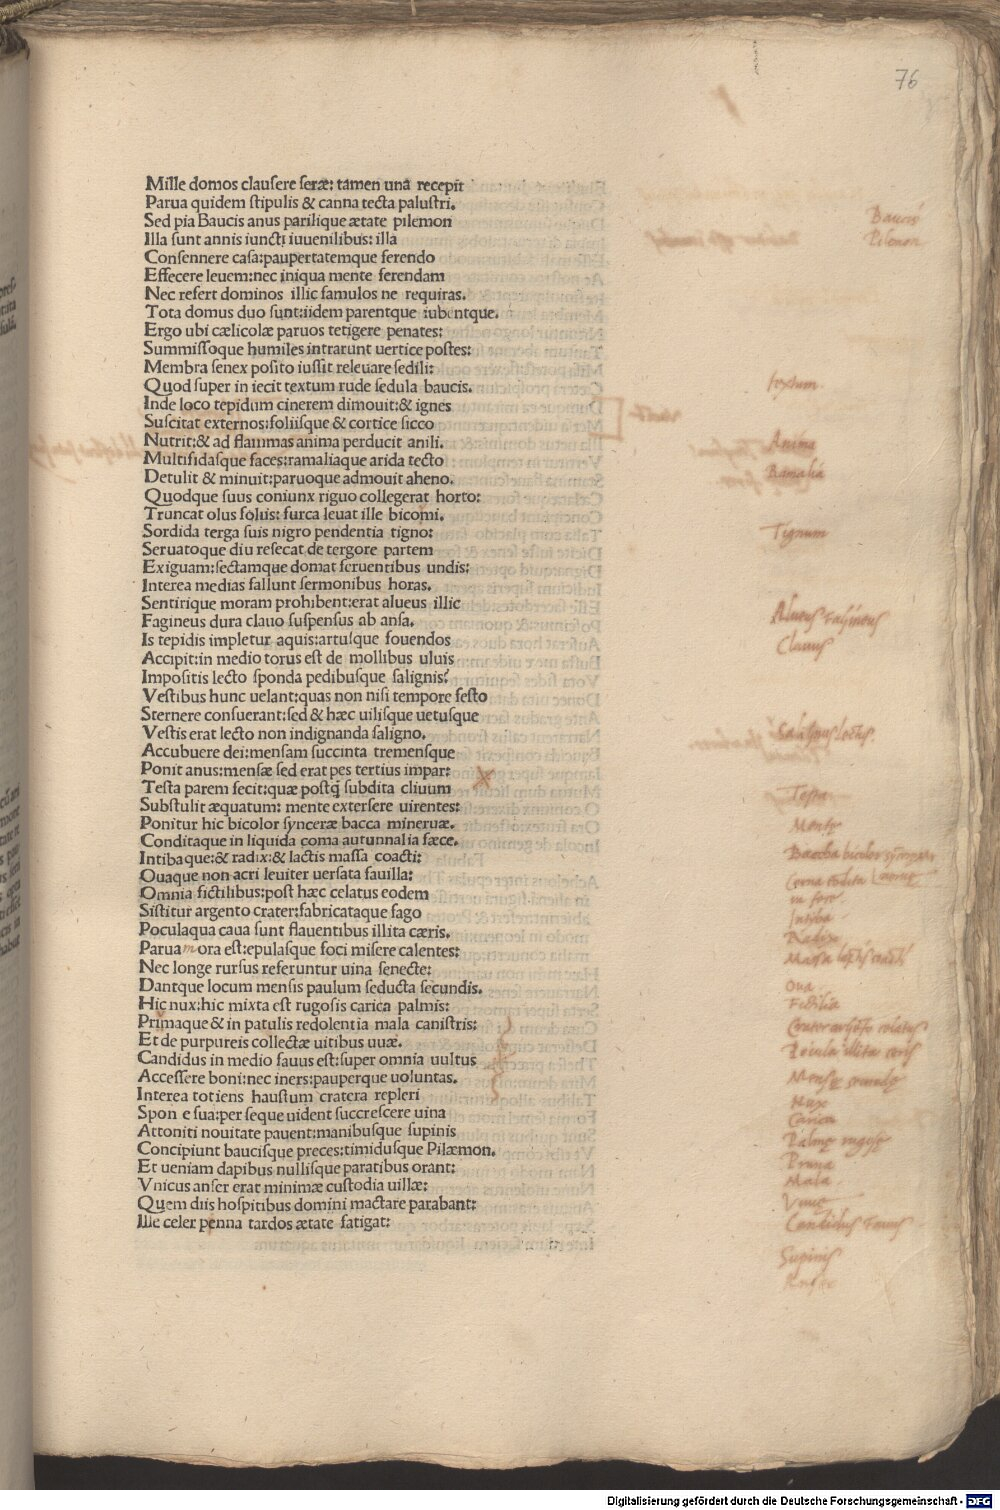 76
Mille domos clausere seræ: tamen una recepit
Parua quidem stipulis & canna tecta palustri.
Sed pia Baucis anus parilique ætate pilemon
Illa sunt annis iuncti iuuenilibus: illa
Consennere casa:paupertatemque ferendo
Effecere leuem:nec iniqua mente ferendam
Nec refert dominos illic famulos ne requiras.
Tota domus duo sunt:iidem parentque iubentque.
Ergo ubi cælicolæ paruos tetigere penates:
Summissoque humiles intrarunt uertice postes:
Membra senex posito iussit releuare sedili:
Quod super in iecit textum rude sedula baucis.
Inde loco tepidum cinerem dimouit:& ignes
Suscitat externos:foliisque & cortice sicco
Nutrit:& ad flammas anima perducit anili.
Multifidasque faces:ramaliaque arida tecto
Detulit & minuit:paruoque admouit aheno.
Quodque suus coniunx riguo collegerat horto:
Truncat olus folus: furca leuat ille bicomi.
Sordida terga suis nigro pendentia tigno:
Seruatoque diu resecat de tergore partem
Exiguam:sectamque domat feruentibus undis:
Interea medias fallunt sermonibus horas.
Sentirique moram prohibent:erat alueus illic
Fagineus dura clauo suspensus ab ansa.
Is tepidis impletur aquis:artusque fouendos
Accipit:in medio torus est de mollibus uluis
Impositis lecto sponda pedibusque salignis:
Vestibus hunc uelant:quas non nisi tempore festo
Sternere consuerant:sed & hæc uilisque uetusque
Vestis erat lecto non indignanda saligno.
Accubuere dei:mensam succinta tremensque
Ponit anus:mensæ sed erat pes tertius impar:
Testa parem fecit:quæ postq̃ subdita cliuum
Substulit æquatum: mente extersere uirentes:
Ponitur hic bicolor synceræ bacca mineruæ.
Conditaque in liquida coma autunnalia fæce.
Intibaque:& radix:& lactis massa coacti:
Ouaque non acri leuiter uersata fauilla:
Omnia fictilibus:post hæc celatus eodem
Sistitur argento crater:fabricataque fago
Poculaqua caua sunt flauentibus illita cæris.
Parua mora est:epulasque foci misere calentes:
Nec longe rursus referuntur uina senecte:
Dantque locum mensis paulum seducta secundis.
Hic nux:hic mixta est rugosis carica palmis:
Primaque & in patulis redolentia mala canistris:
Et de purpureis collectæ uitibus uuæ.
Candidus in medio fauus est:super omnia uultus
Accessere boni:nec iners:pauperque uoluntas.
Interea totiens haustum cratera repleri
Spon e sua:per seque uident succrescere uina
Attoniti nouitate pauent:manibusque supinis
Concipiunt baucisque preces:timidusque Pilæmon.
Et ueniam dapibus nullisque paratibus orant:
Vnicus anser erat minimæ custodia uillæ:
Quem diis hospitibus domini mactare parabant:
Ille celer penna tardos ætate fatigat:
Baucis
Pilemon
textum
Anima
Ramalia
Tignum
Alueus Fagineus
Clauus
Salignus lectus.
Testa
Bacca bicolor
Intiba
Radix
Massa lactis
Oua
Fictilia
Pocula illita ceris
Nux
Carica
Palmę rugose
Pruna
Mala
Candidus Fauus
Supinis
Anser
Digitalisierung gefördert durch die Deutsche Forschungsgemeinschaft - DFG